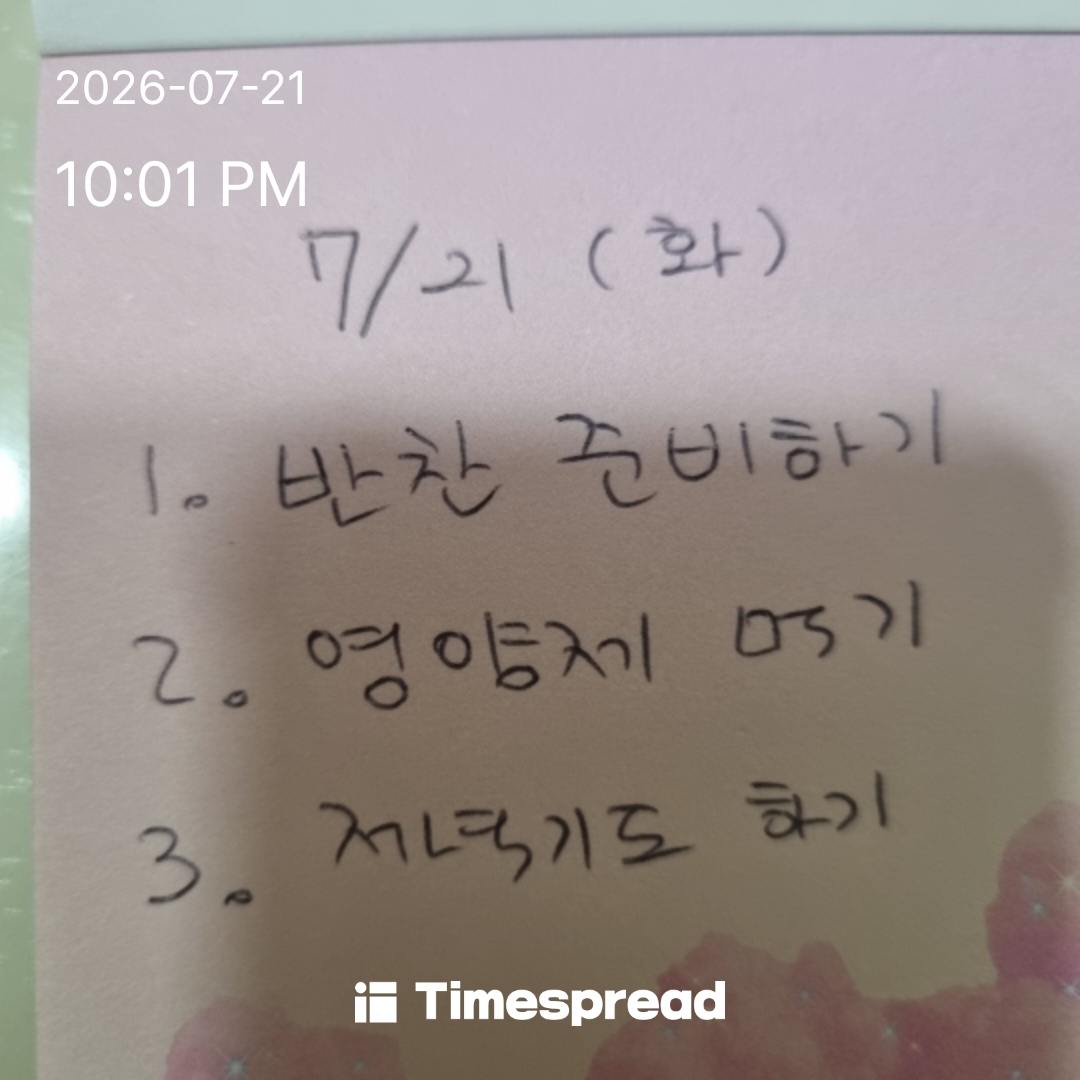 2026-07-21
10:01 PM
7/21 (화)
1. 반찬 준비하기
2. 영양제 먹기
3. 저녁기도 하기
Timespread